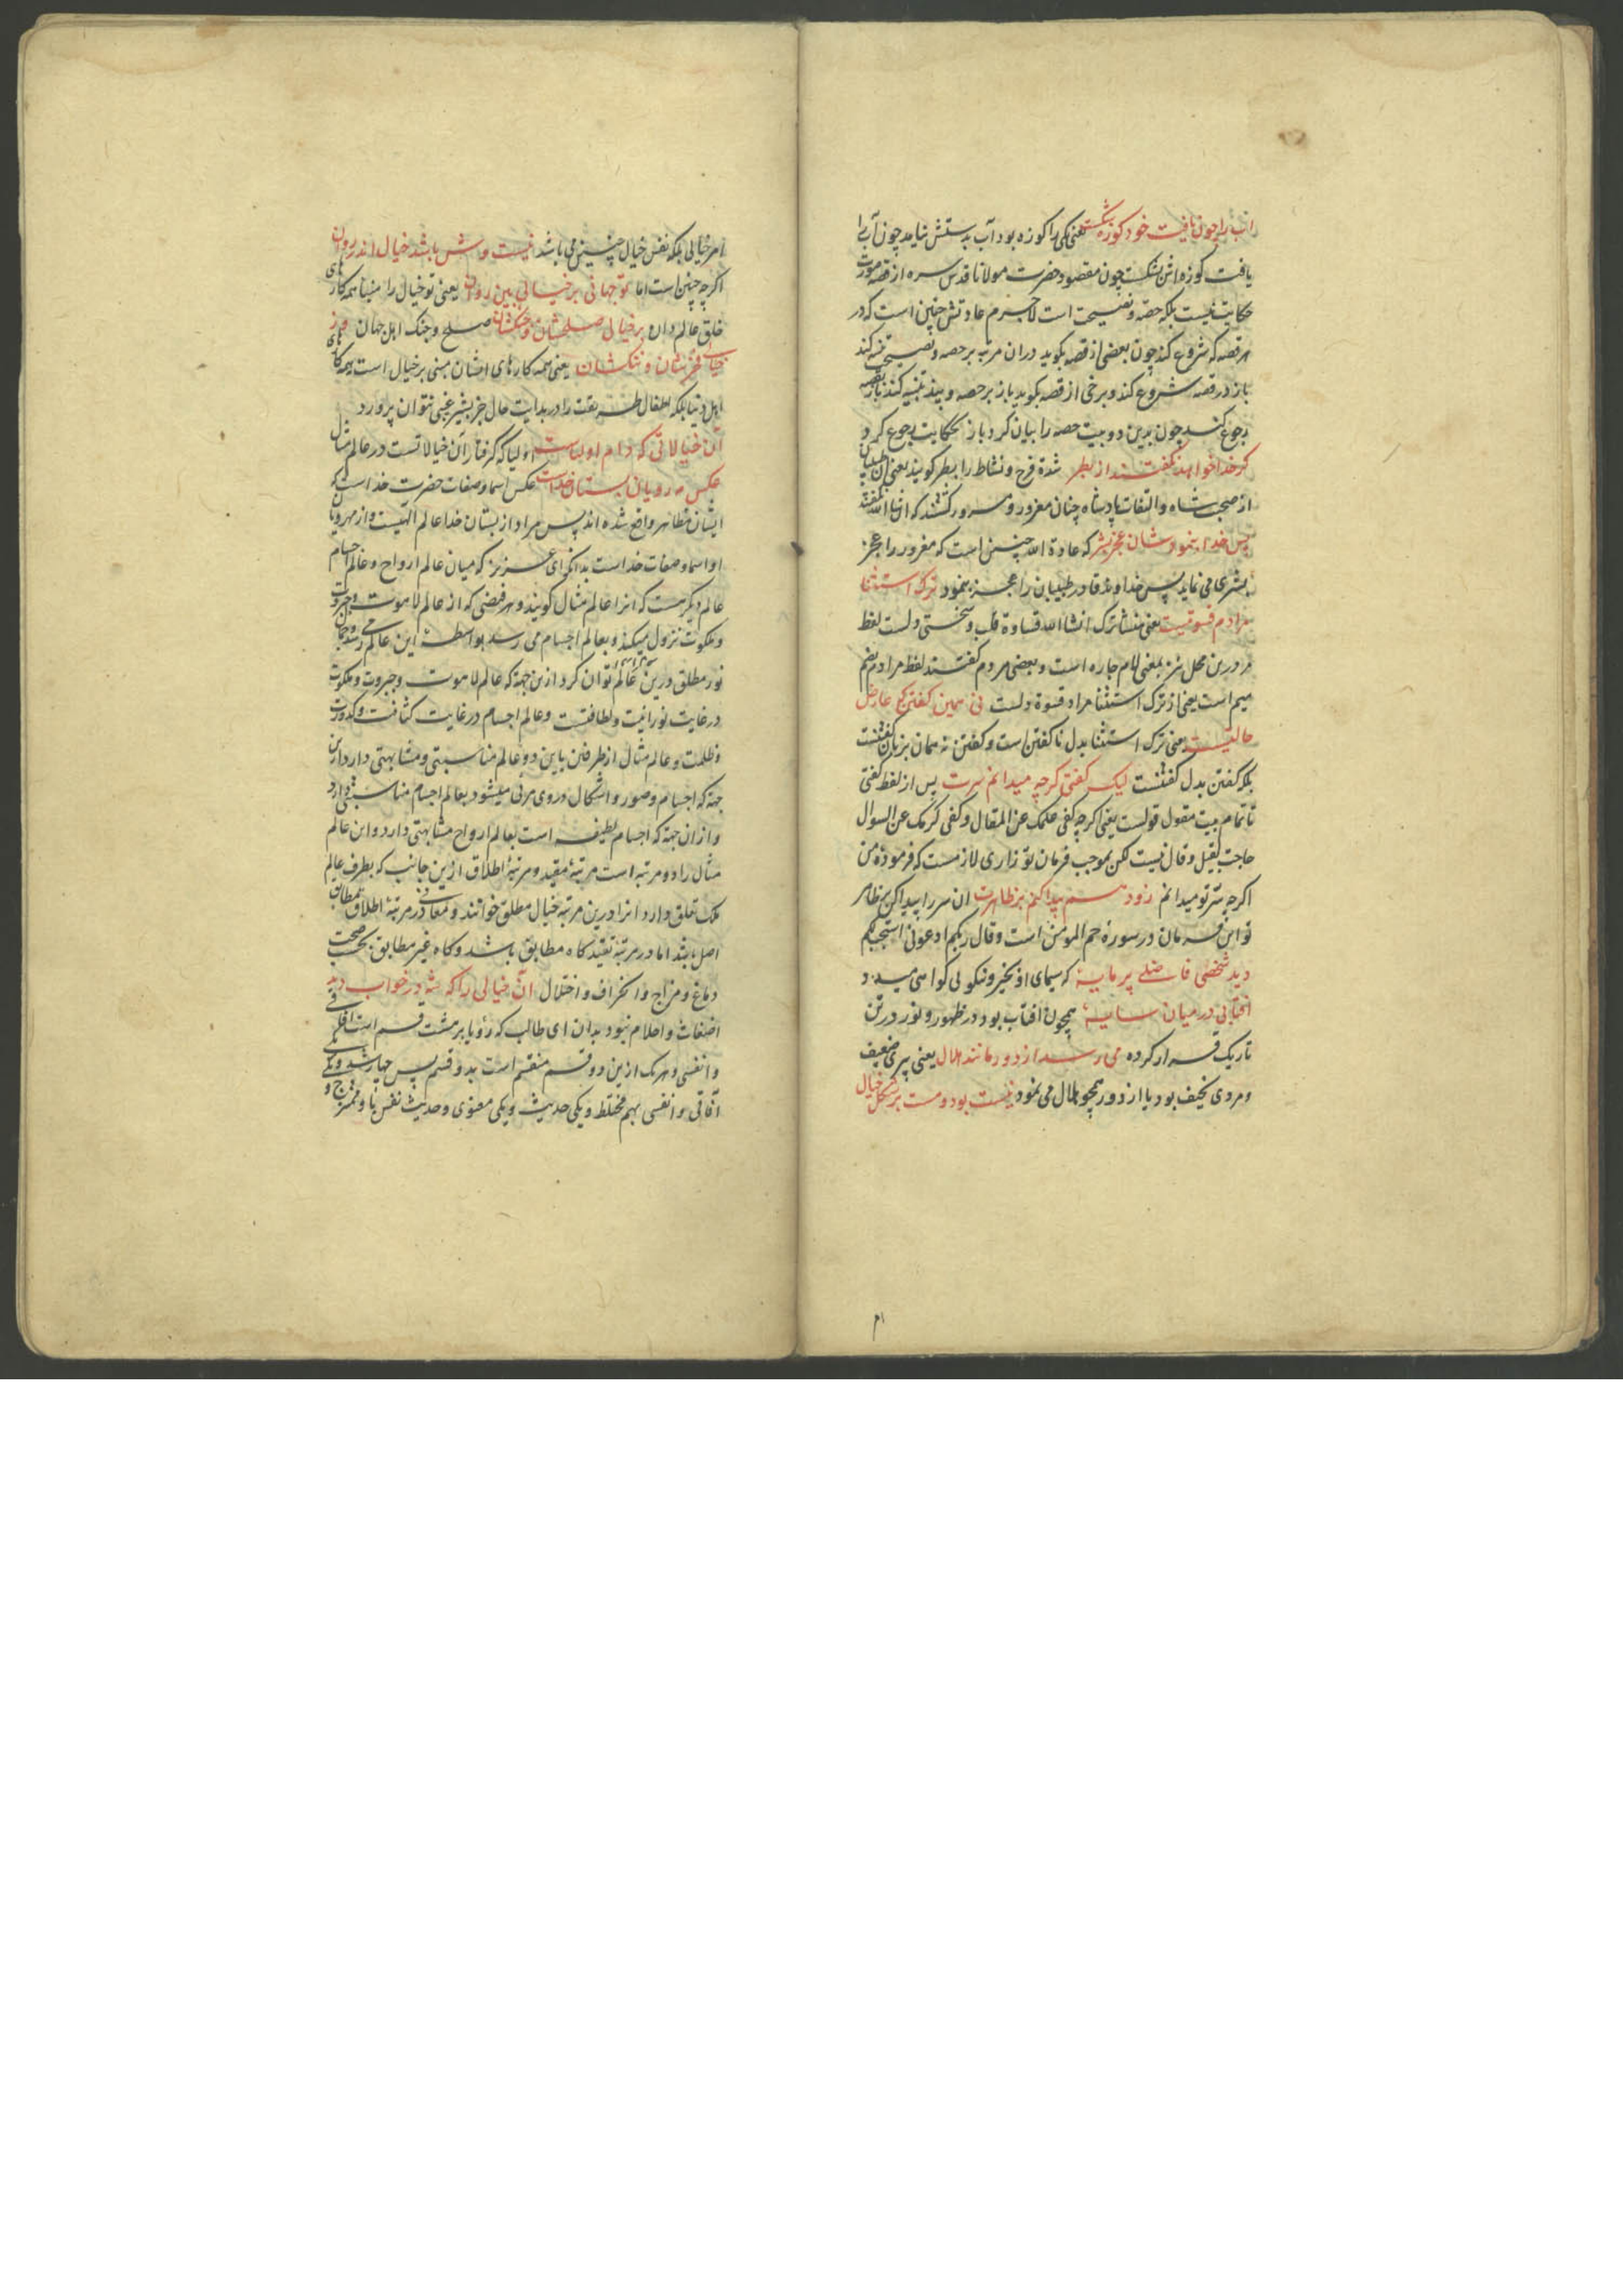 آب را چون یافت خود کوزه شکست یعنی یکی را کوزه بود آب بدستش نیامد چون آب را
یافت کوزه اش بشکست چون مقصود حضرت مولانا قدس سره از قصه صورت
حکایت نیست بلکه حصه و نصیحت است لاجرم عادتش چنین است که در
هر قصه که شروع کند چون بعضی از قصه بگوید دران مرتبه بر حصه و نصیحت تنبیه کند
باز در قصه شروع کند و برخی از قصه بگوید باز بر حصه و پند تنبیه کند باز بقصه
رجوع کند چون بدین دو بیت حصه را بیان کرد باز بحکایت رجوع کرد و
گر خدا خواهد نگفتند از بطر شدة فرح و نشاط را بطر گویند یعنی آن طبیبان
از صحبت شاه و التفات پادشاه چنان مغرور و مسرور گشتند که ان شاء الله نگفتند
پس خدا بنمودشان عجز بشر که عادة الله چنین است که مغرور را عجز
بشری می نماید پس خداوند قادر طبیبان را عجز بنمود ترک استثنا
مرادم قسوتیست یعنی منشأ ترک انشا الله قساوة قلب و سختی دلست لفظ
مر درین محل نیز بمعنی لام جاره است و بعضی مردم گفتند لفظ مراد بضم
میم است یعنی از ترک استثنا مراد قسوة دلست نی همین گفتن که عارض
حالتیست یعنی ترک استثنا بدل ناگفتن است و گفتن نه همان بزبان گفتنست
بلکه گفتن بدل گفتنست لیک گفتی گرچه میدانم سرت پس از لفظ گفتی
تا تمام بیت مقول قولست یعنی اگرچه کفی علمک عن المقال و کفی کرمک عن السوال
حاجت بقیل و قال نیست لکن بموجب فرمان تو زاری لازمست که فرموده من
اگرچه سر تو میدانم زود هم پیدا کنم بر ظاهرت آن سر را پیدا کن بر ظاهر
تو این فرمان در سورهٔ حم المؤمن است و قال ربکم ادعونی استجب لکم
دید شخصی فاضلی پر مایهٔ که سیمای او بخیر و نیکویی گواهی میداد
آفتابی درمیان سایهٔ همچون آفتاب بود در ظهور و نور در تن
تاریک قرار کرده می رسید از دور مانند هلال یعنی پیری ضعیف
و مردی نحیف بود یا از دور همچو هلال می نمود نیست بود و هست بر شکل خیال
امر خیالی بلکه نفس خیال چنین می باشد نیست وش باشد خیال اندر روان
اگرچه چنین است اما تو جهانی بر خیالی بین روان یعنی تو خیال را مبنا همه کارهای
خلق عالم دان بر خیالی صلحشان و جنگشان صلح و جنگ اهل جهان وز
خیالی فخرشان و ننگشان یعنی همه کارهای ایشان مبنی بر خیال است همه کارهای
اهل دنیا بلکه اطفال طریقت را در بدایت حال جز بشیر غیبی نتوان پرورد
آن خیالاتی که دام اولیاست اولیا که گرفتار آن خیالاتست در عالم مثال
عکس مه رویان بستان خداست عکس اسما و صفات حضرت خداست که
ایشان مظاهر واقع شده اند پس مراد از بستان خدا عالم الهیست و از مهرویان
او اسما و صفات خداست بدانکه ای عزیز که میان عالم ارواح و عالم اجسام
عالم دیگر هست که آنرا عالم مثال گویند و هر فیضی که از عالم لاهوت و جبروت
و ملکوت نزول میکند و بعالم اجسام می رسد بواسطهٔ این عالم می رسد
نور مطلق درین عالم توان کرد ازین جهة که عالم لاهوت و جبروت و ملکوت
در غایت نورانیت و لطافتست و عالم اجسام در غایت کثافت و کدورت
و ظلمت و عالم مثال از طرفین باین دو عالم مناسبتی و مشابهتی دارد ازین
جهة که اجسام و صور و اشکال در وی مرئی میشود بعالم اجسام مناسبتی دارد
و ازان جهة که اجسام لطیفه است بعالم ارواح مشابهتی دارد و این عالم
مثال را دو مرتبه است مرتبهٔ مقید و مرتبهٔ اطلاق ازین جانب که بطرف عالم
ملک تعلق دارد آنرا درین مرتبه خیال مطلق خوانند و معانی در مرتبهٔ اطلاق مطابق
اصل باشد اما در مرتبهٔ تقید گاه مطابق باشد و گاه غیر مطابق بحسب صحت
دماغ و مزاج و انحراف و اختلال آن خیالی را که شه در خواب دید
اضغاث و احلام نبود بدان ای طالب که رؤیا بر هشت قسم است آفاقی
و انفسی و هر یک ازین دو قسم منقسم است بدو قسم پس چهار شد و یکی
آفاقی و انفسی بهم مختلط و یکی حدیث و یکی معنوی و حدیث نفس
ام